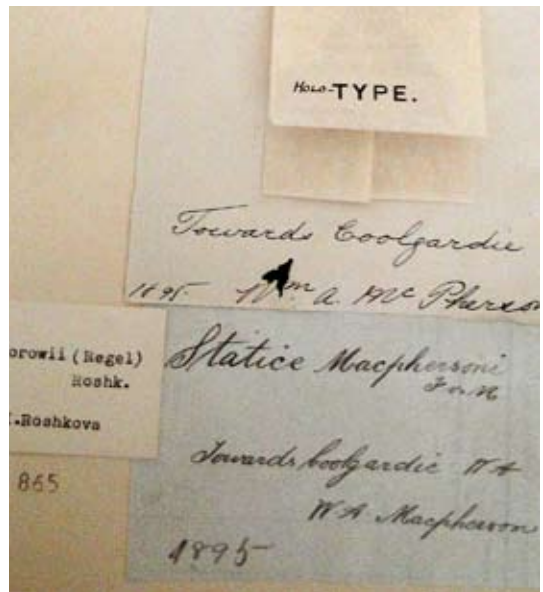 HOLO-TYPE.
Towards Coolgardie
1895. Wm A. McPherson
orowii (Regel)
Roshk.
I.Roshkova
865
Statice Macphersoni
F v M
Towards Coolgardie W A
W A Macpherson
1895